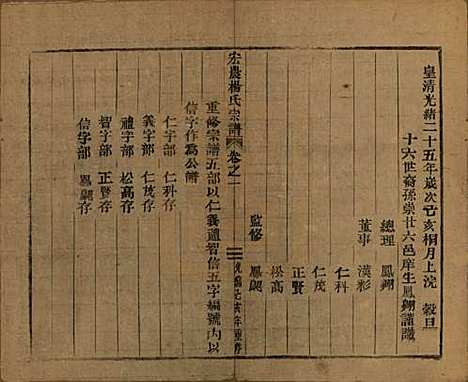 皇清光緒二十五年歲次己亥桐月上浣 穀旦
十六世裔孫崇廿六邑庠生鳳翱謹識
總理 鳳翱
董事 漢彩
仁科
仁茂
正賢
松高
監修 鳳
宏農楊氏宗譜 卷之一
重修宗譜五部以仁義禮智信五字編號內以
信字作為公譜
仁字部 仁科存
義字部 仁茂存
禮字部 松高存
智字部 正賢存
信字部 鳳存